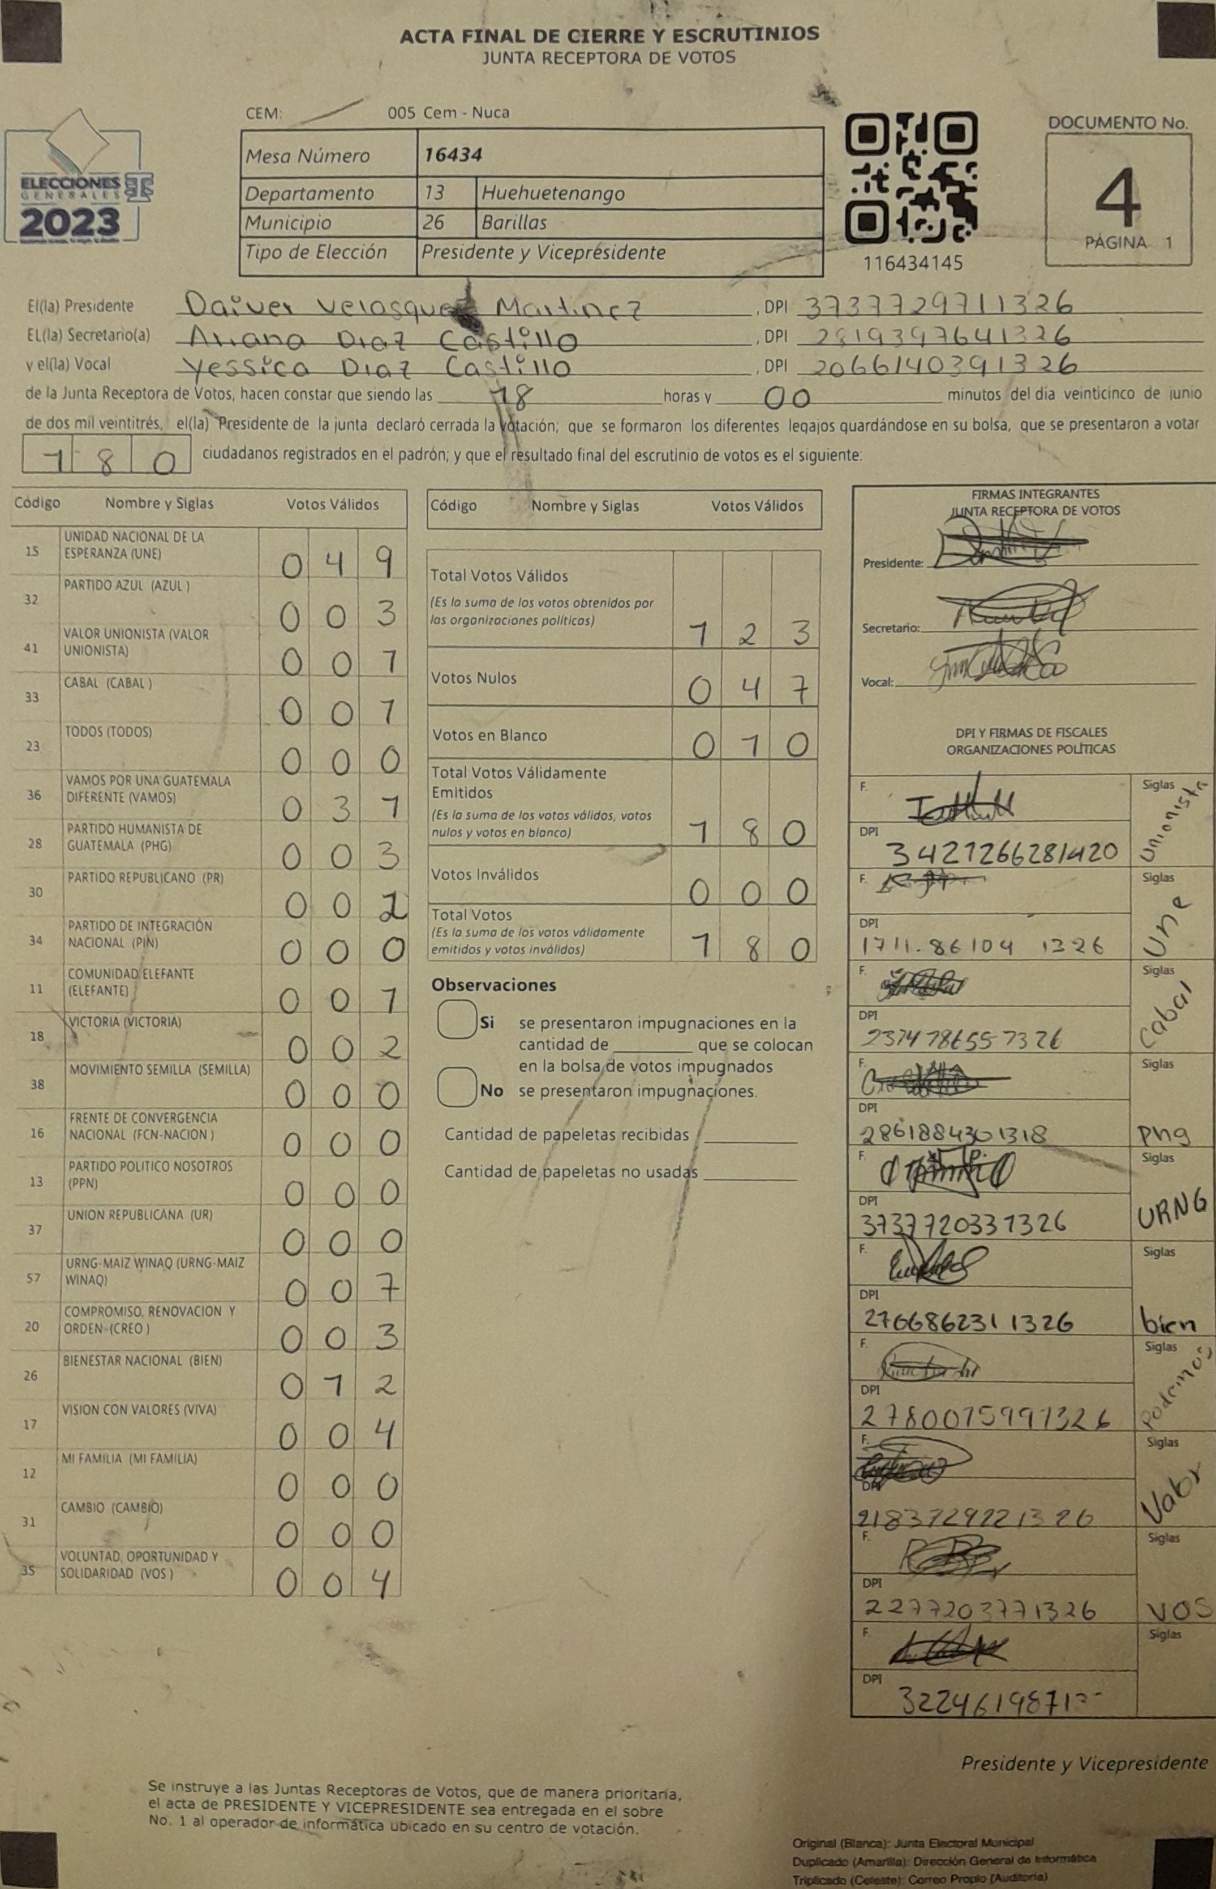 ACTA FINAL DE CIERRE Y ESCRUTINIOS
JUNTA RECEPTORA DE VOTOS
CEM: 005 Cem - Nuca
ELECCIONES
GENERALES
2023
Mesa Número 16434
Departamento 13 Huehuetenango
Municipio 26 Barillas
Tipo de Elección Presidente y Vicepresidente
116434145
DOCUMENTO No.
4
PÁGINA 1
El(la) Presidente Daiver Velasquez Martinez, DPI 3737729711326
EL(la) Secretario(a) Ariana Diaz Castillo, DPI 2819397641326
y el(la) Vocal Yessica Diaz Castillo, DPI 2066140391326
de la Junta Receptora de Votos, hacen constar que siendo las 18 horas y 00 minutos del dia veinticinco de junio
de dos mil veintitrés, el(la) Presidente de la junta declaró cerrada la votación; que se formaron los diferentes legajos guardándose en su bolsa, que se presentaron a votar
180 ciudadanos registrados en el padrón; y que el resultado final del escrutinio de votos es el siguiente:
Código Nombre y Siglas Votos Válidos
15 UNIDAD NACIONAL DE LA ESPERANZA (UNE) 049
32 PARTIDO AZUL (AZUL) 003
41 VALOR UNIONISTA (VALOR UNIONISTA) 001
33 CABAL (CABAL) 001
23 TODOS (TODOS) 000
36 VAMOS POR UNA GUATEMALA DIFERENTE (VAMOS) 031
28 PARTIDO HUMANISTA DE GUATEMALA (PHG) 003
30 PARTIDO REPUBLICANO (PR) 002
34 PARTIDO DE INTEGRACIÓN NACIONAL (PIN) 000
11 COMUNIDAD ELEFANTE (ELEFANTE) 001
18 VICTORIA (VICTORIA) 002
38 MOVIMIENTO SEMILLA (SEMILLA) 000
16 FRENTE DE CONVERGENCIA NACIONAL (FCN-NACION) 000
13 PARTIDO POLITICO NOSOTROS (PPN) 000
37 UNION REPUBLICANA (UR) 000
57 URNG-MAIZ WINAQ (URNG-MAIZ WINAQ) 007
20 COMPROMISO, RENOVACION Y ORDEN (CREO) 003
26 BIENESTAR NACIONAL (BIEN) 012
17 VISION CON VALORES (VIVA) 004
12 MI FAMILIA (MI FAMILIA) 000
31 CAMBIO (CAMBIO) 000
35 VOLUNTAD, OPORTUNIDAD Y SOLIDARIDAD (VOS) 004
Código Nombre y Siglas Votos Válidos
Total Votos Válidos
(Es la suma de los votos obtenidos por
las organizaciones políticas) 123
Votos Nulos 047
Votos en Blanco 010
Total Votos Válidamente
Emitidos
(Es la suma de los votos válidos, votos
nulos y votos en blanco) 180
Votos Inválidos 000
Total Votos
(Es la suma de los votos válidamente
emitidos y votos inválidos) 180
Observaciones
Si se presentaron impugnaciones en la
cantidad de ________ que se colocan
en la bolsa de votos impugnados
No se presentaron impugnaciones.
Cantidad de papeletas recibidas
Cantidad de papeletas no usadas
FIRMAS INTEGRANTES
JUNTA RECEPTORA DE VOTOS
Presidente:
Secretario:
Vocal:
DPI Y FIRMAS DE FISCALES
ORGANIZACIONES POLÍTICAS
F. Siglas Unionista
DPI 3421266281420
F. Siglas Une
DPI 1711.86104 1326
F. Siglas Cabal
DPI
F. Siglas
DPI 2861884301318 Phg
F. Siglas
DPI 3737720331326 URNG
F. Siglas
DPI 2766862311326 bien
F. Siglas Podemos
DPI 2780075991326
F. Siglas Valor
DPI 2183729221326
F. Siglas
DPI 2277203771326 VOS
F. Siglas
DPI
Presidente y Vicepresidente
Se instruye a las Juntas Receptoras de Votos, que de manera prioritaria,
el acta de PRESIDENTE Y VICEPRESIDENTE sea entregada en el sobre
No. 1 al operador de informática ubicado en su centro de votación.
Original (Blanca): Junta Electoral Municipal
Duplicado (Amarilla): Dirección General de Informática
Triplicado (Celeste): Correo Propio (Auditoría)